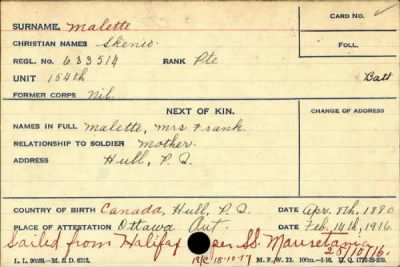 SURNAME. Malette CARD NO.
CHRISTIAN NAMES Skenio. FOLL.
REGL. NO. 633514 RANK Pte
UNIT 154th Batt
FORMER CORPS Nil.
NEXT OF KIN. CHANGE OF ADDRESS
NAMES IN FULL Malette, Mrs Frank.
RELATIONSHIP TO SOLDIER Mother.
ADDRESS Hull, P. Q.
COUNTRY OF BIRTH Canada, Hull, P. Q. DATE Apr. 8th, 1880
PLACE OF ATTESTATION Ottawa Ont. DATE Feb, 14th, 1916
Sailed from Halifax per SS. Mauretania 25/10/16.
R/C 18-10-17
L. L. M. & D. M. F. W. 22.